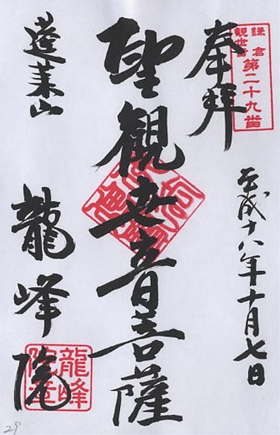 鎌倉
観世音
第二十九番
奉拝
平成十八年十月七日
聖観世音菩薩
蓬莱山
龍峰院
龍峰
院章
29